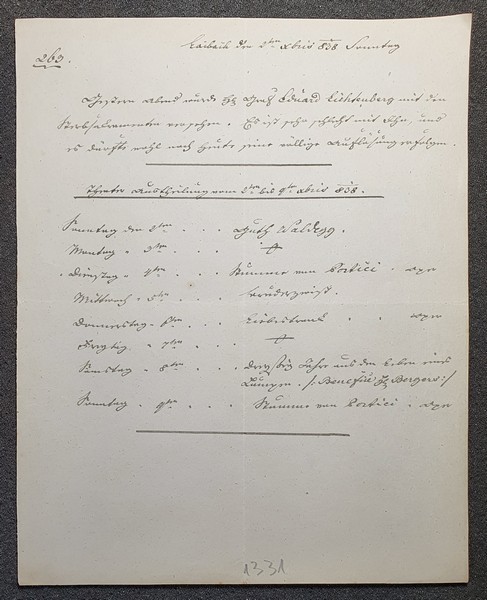 263.
Laibach den 2ten Xbris 838 Sonntag
Gestern Abend wurde H. Graf Eduard Lichtenberg mit den
Sterbsakramenten versehen. Es ist sehr schlecht mit Ihm, und
es dürfte wohl noch heute seine völlige Auflösung erfolgen.
Theater Austheilung vom 2ten bis 9ten Xbris 838.
Sonntag den 2ten . . . Waldegg.
Montag " 3ten . . .
Dienstag " 4ten . . . Stumme von Portici . Oper
Mittwoch " 5ten . . .
Donnerstag " 6ten . . . Liebestrank . . Oper
Freytag " 7ten . . .
Samstag " 8ten . . . Dreyßig Jahre aus dem Leben eines
Lumpen. /: Benefice H. Bergers :/
Sonntag . 9ten . . . Stumme von Portici . Oper
1331